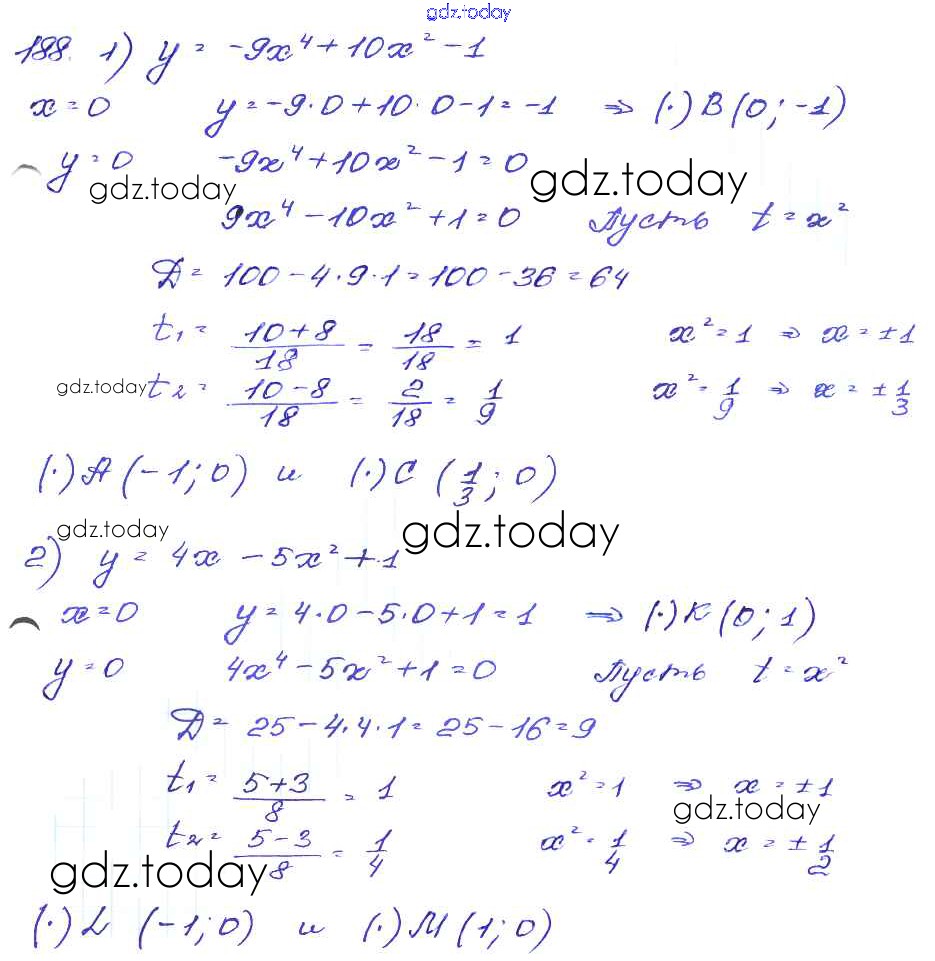 gdz.today
188. 1) y = -9x⁴ + 10x² - 1
x = 0 y = -9·0 + 10·0 - 1 = -1 ⇒ (·) B (0; -1)
y = 0 -9x⁴ + 10x² - 1 = 0
gdz.today gdz.today
9x⁴ - 10x² + 1 = 0 Пусть t = x²
Д = 100 - 4·9·1 = 100 - 36 = 64
t₁ = (10+8)/18 = 18/18 = 1 x² = 1 ⇒ x = ±1
gdz.today t₂ = (10-8)/18 = 2/18 = 1/9 x² = 1/9 ⇒ x = ± 1/3
(·) A (-1; 0) и (·) C (1/3; 0)
gdz.today gdz.today
2) y = 4x - 5x² + 1
x = 0 y = 4·0 - 5·0 + 1 = 1 ⇒ (·) K (0; 1)
y = 0 4x⁴ - 5x² + 1 = 0 Пусть t = x²
Д = 25 - 4·4·1 = 25 - 16 = 9
t₁ = (5+3)/8 = 1 x² = 1 ⇒ x = ±1
gdz.today
t₂ = (5-3)/8 = 1/4 x² = 1/4 ⇒ x = ± 1/2
gdz.today
(·) L (-1; 0) и (·) M (1; 0)